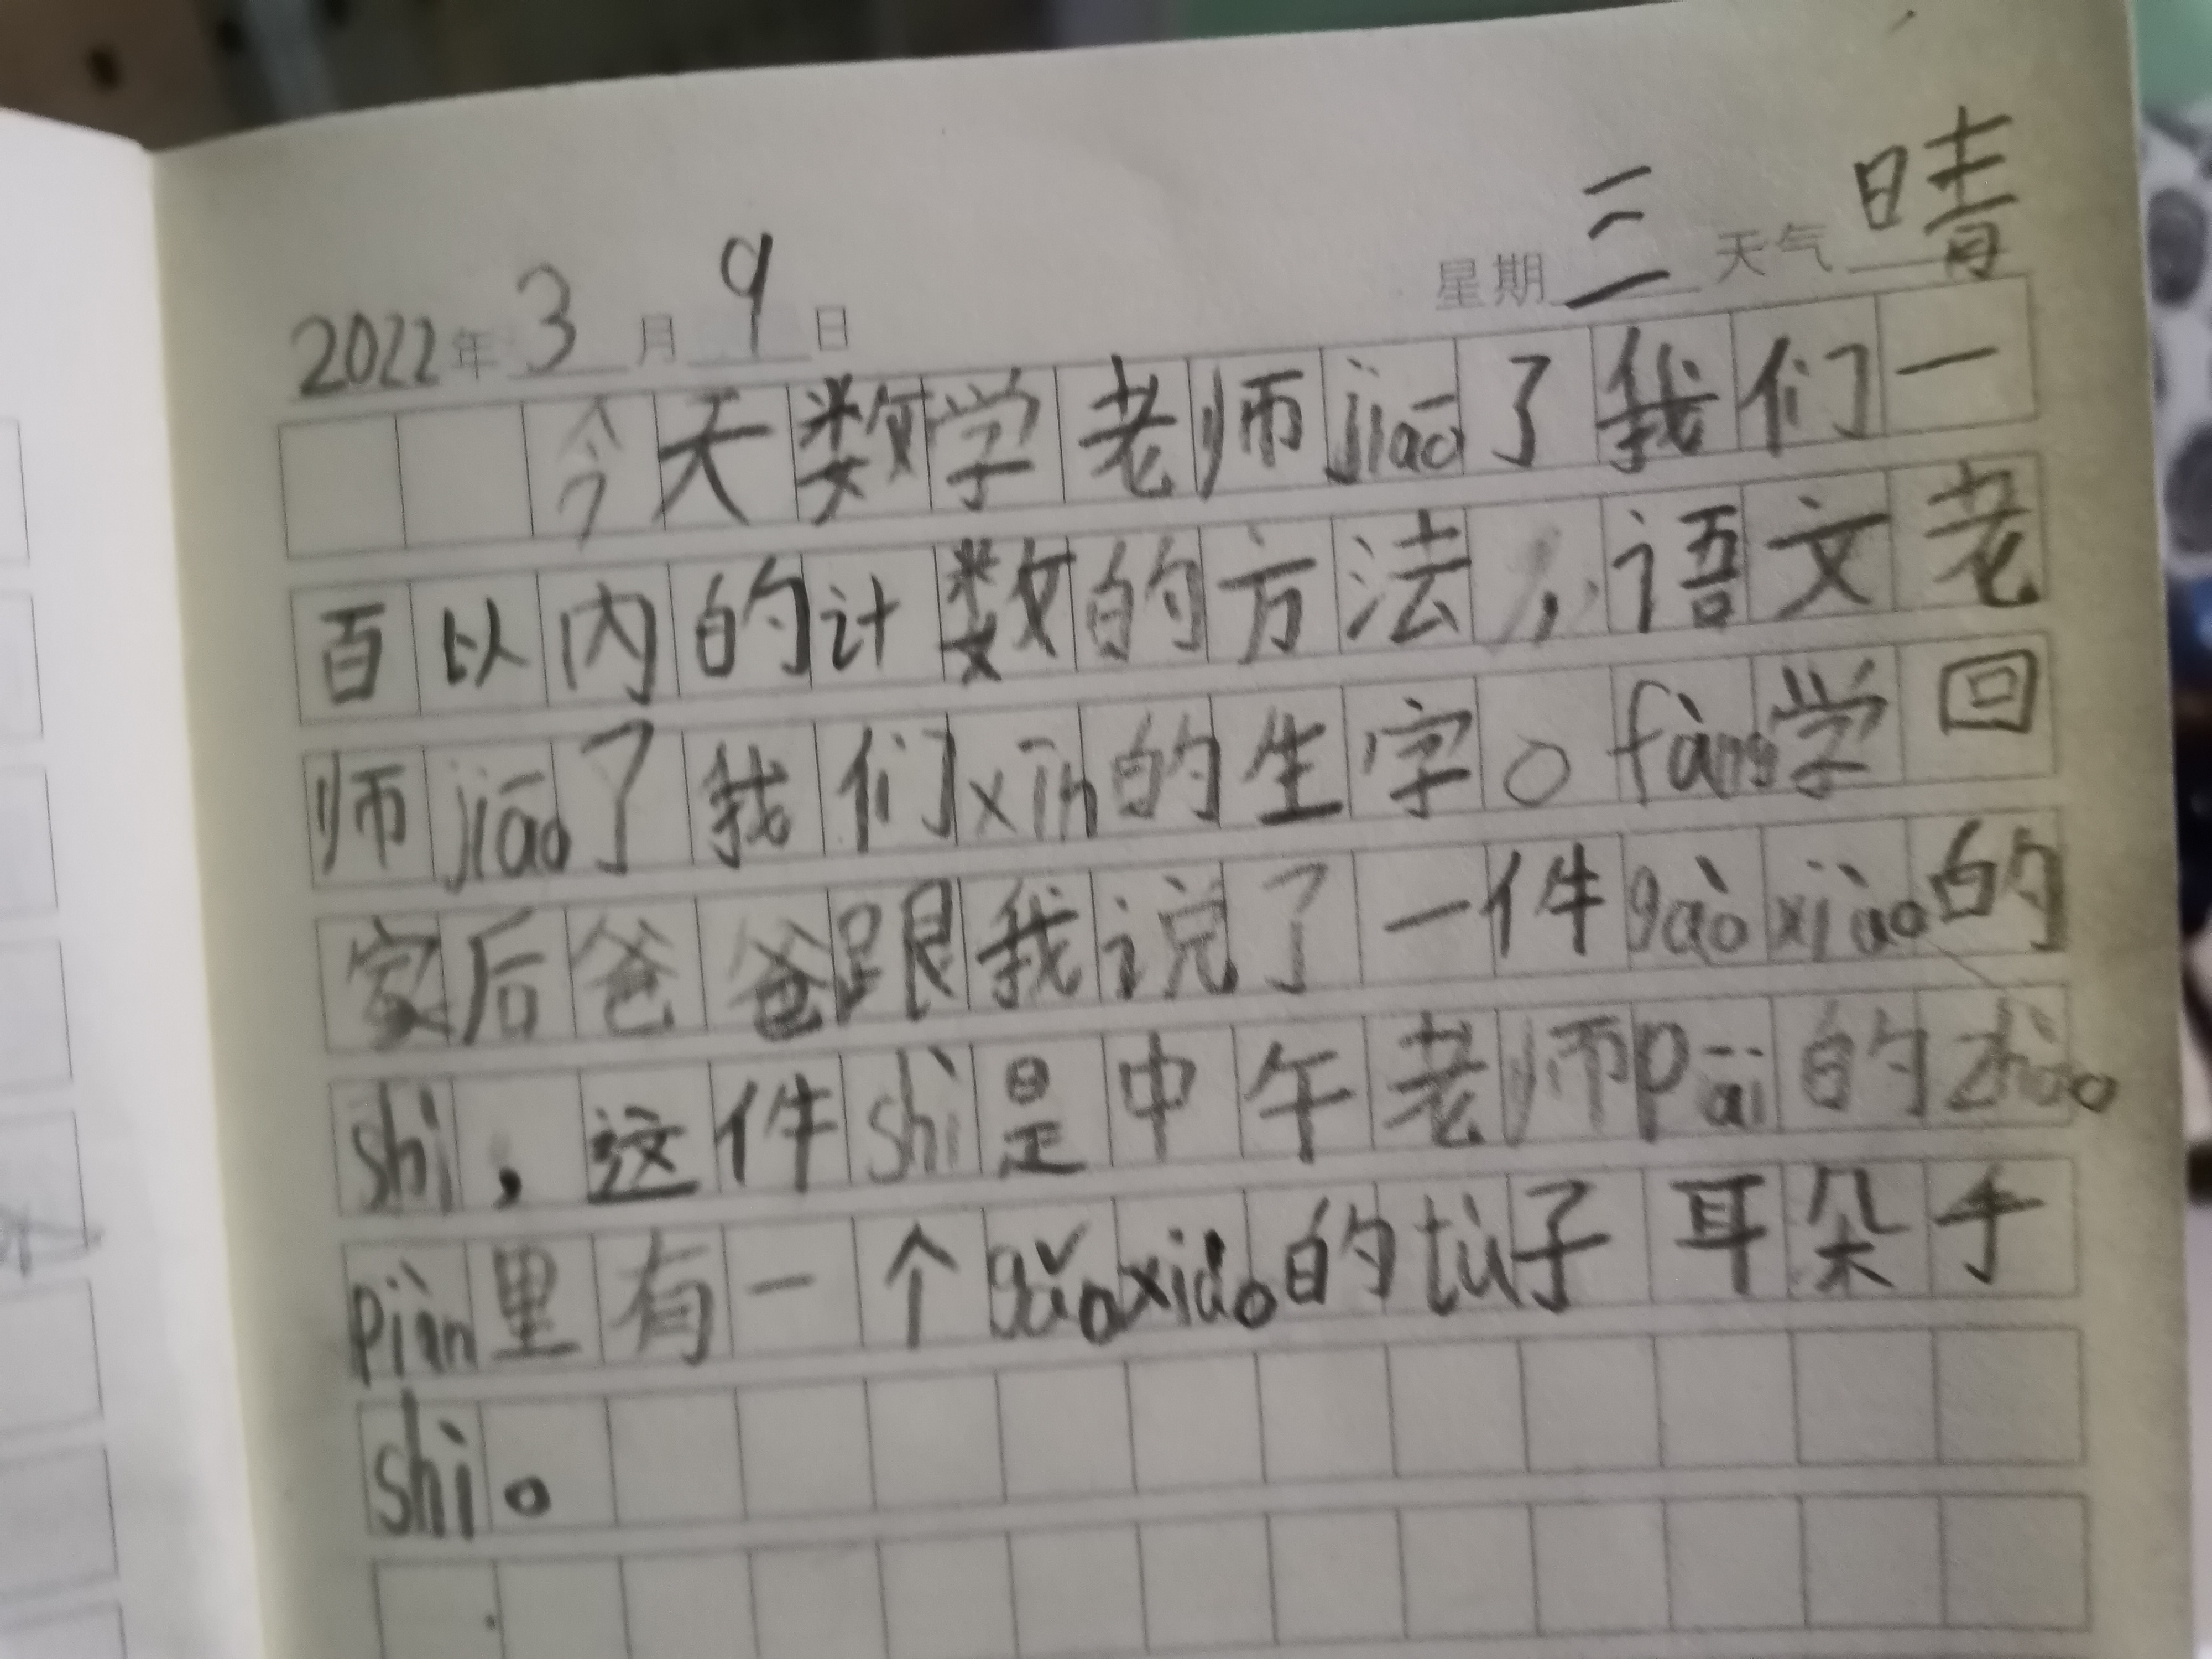 2022年3月9日 星期三 天气晴
今天数学老师jiāo了我们一
百以内的计数的方法，语文老
师jiāo了我们xīn的生字。fàng学回
家后爸爸跟我说了一件gàoxiào的
shì，这件shì是中午老师pāi的zhào
piàn里有一个gǎoxiào的tù子耳朵手
shì。